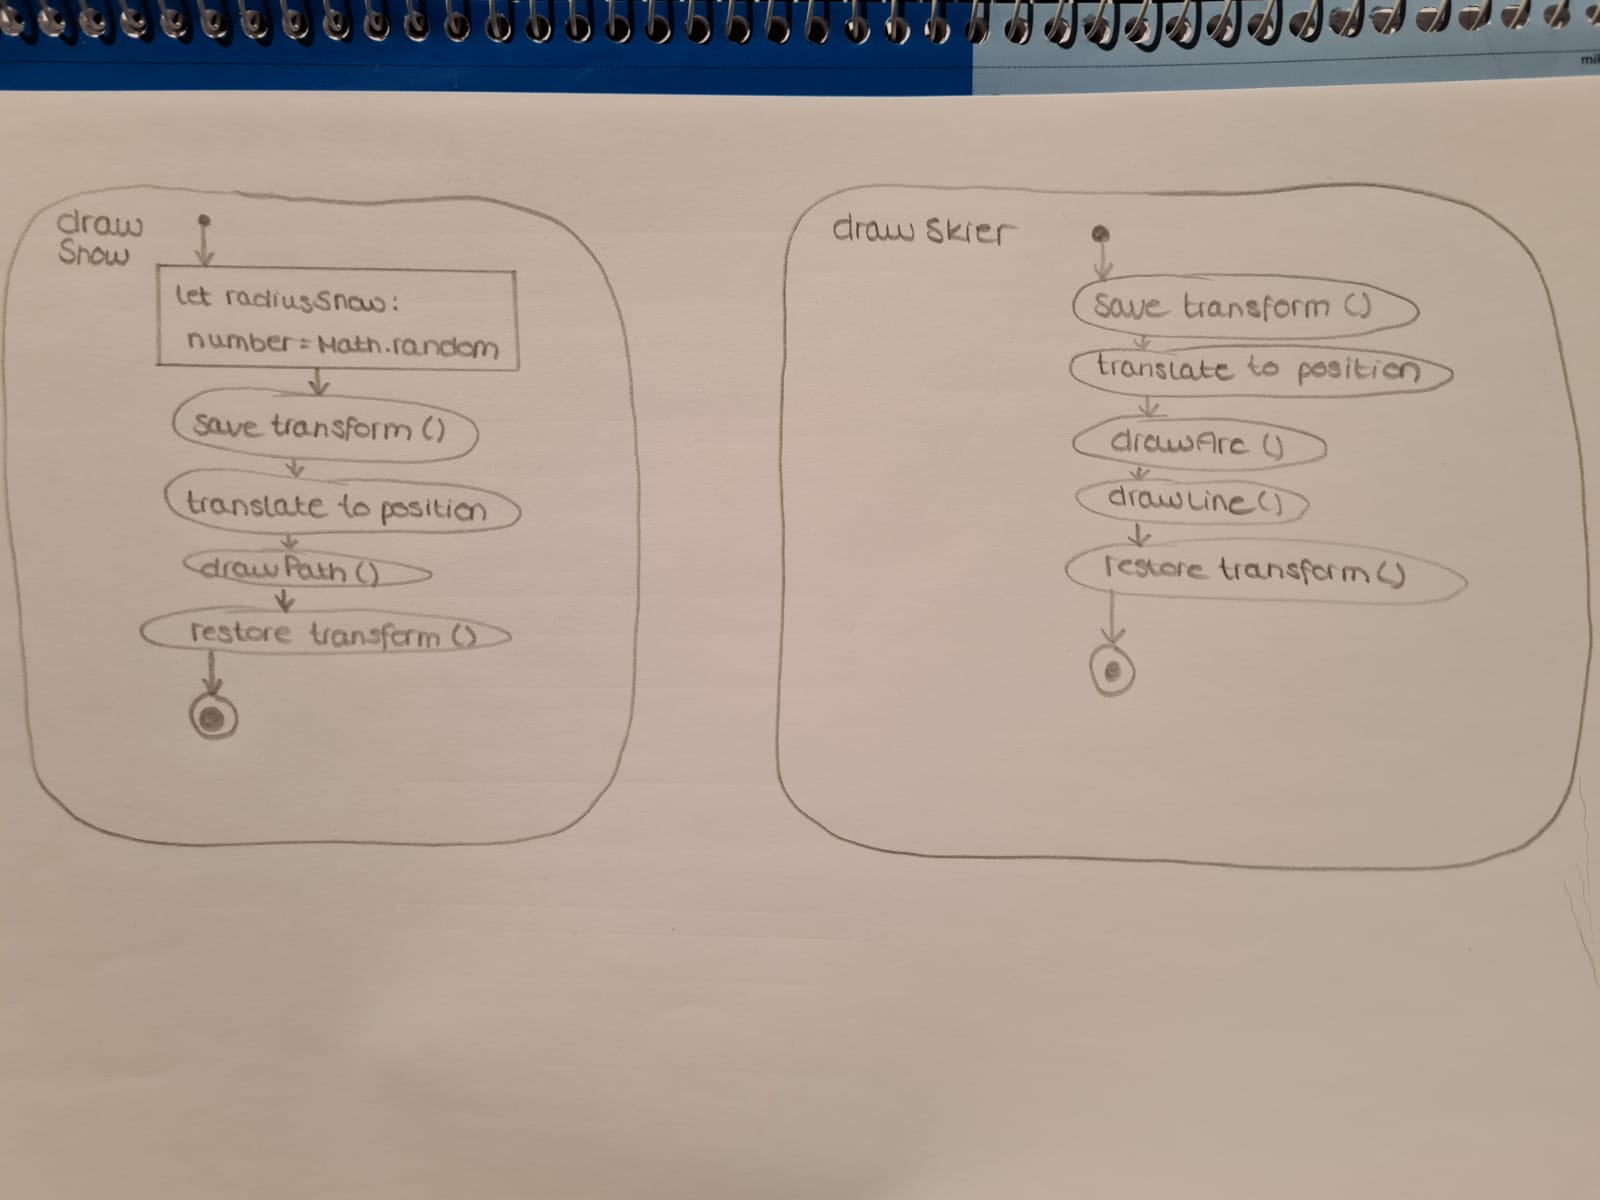 mil
draw
Snow
let radiusSnow:
number = Math.random
save transform ()
translate to position
drawPath ()
restore transform ()
draw Skier
save transform ()
translate to position
drawArc ()
drawLine ()
restore transform ()